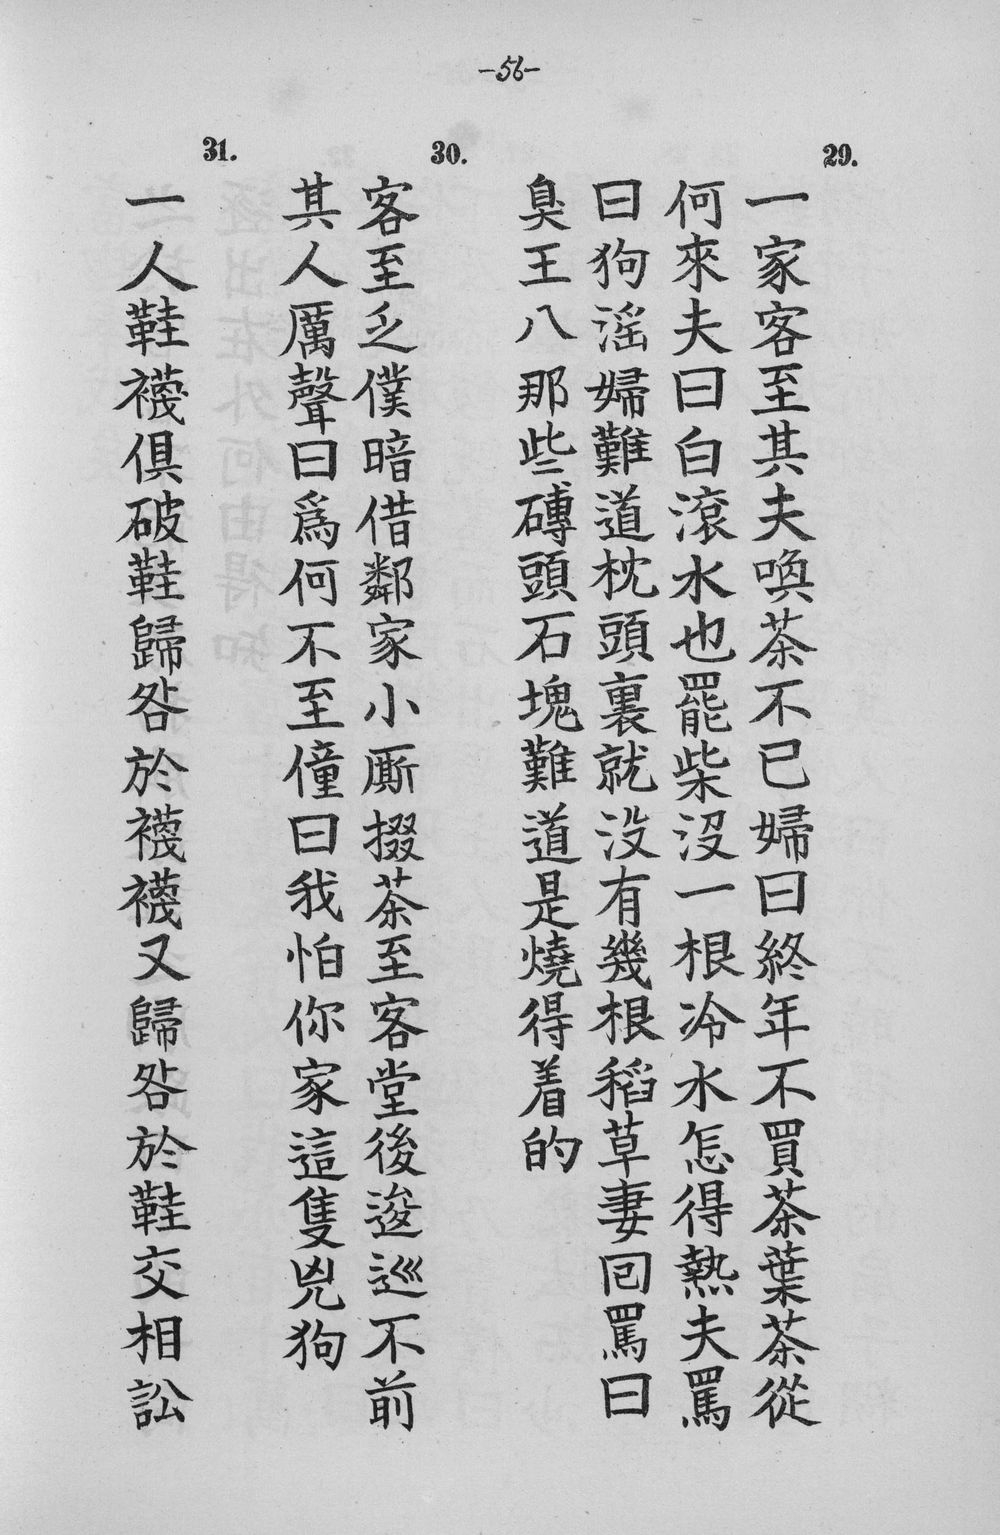 -56-
29.
一家客至其夫喚茶不已婦曰終年不買茶葉茶從
何來夫曰白滾水也罷柴沒一根冷水怎得熱夫罵
曰狗淫婦難道枕頭裏就沒有幾根稻草妻囘罵曰
臭王八那些磚頭石塊難道是燒得着的
30.
客至乏僕暗借鄰家小厮掇茶至客堂後逡巡不前
其人厲聲曰爲何不至僮曰我怕你家這隻兇狗
31.
一人鞋襪俱破鞋歸咎於襪襪又歸咎於鞋交相訟